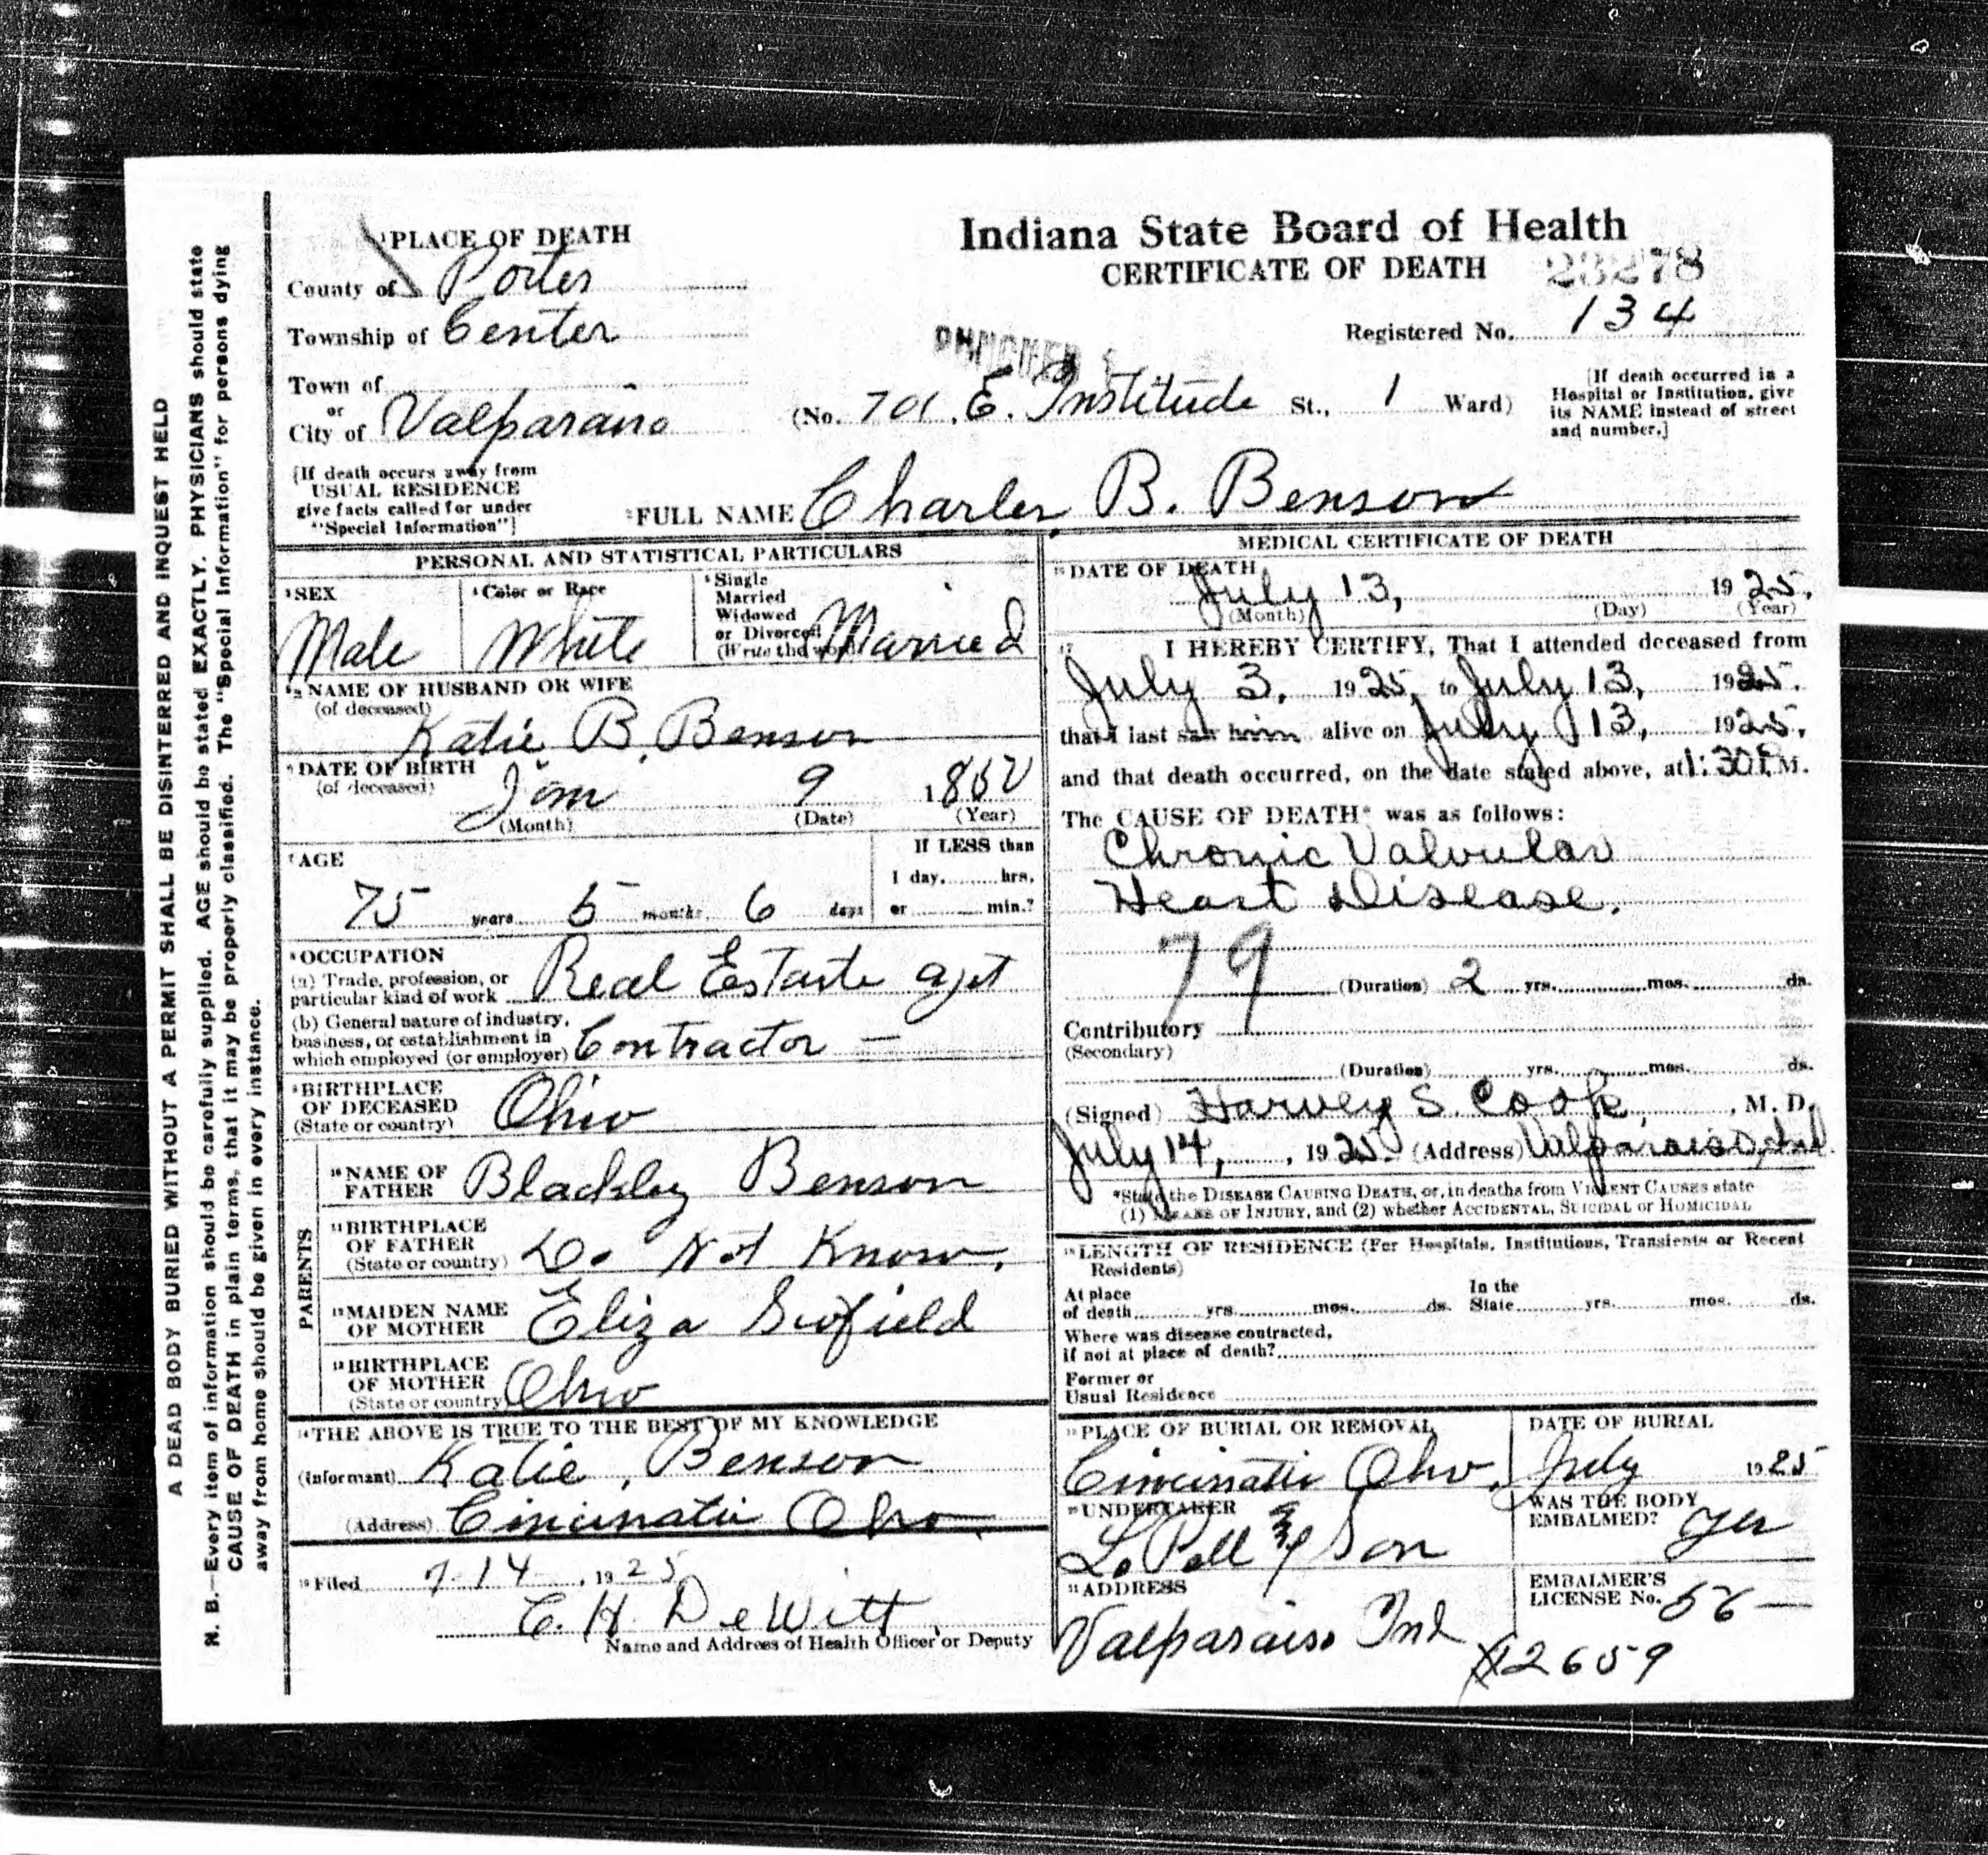 A DEAD BODY BURIED WITHOUT A PERMIT SHALL BE DISINTERRED AND INQUEST HELD
N. B.—Every item of information should be carefully supplied. AGE should be stated EXACTLY. PHYSICIANS should state
CAUSE OF DEATH in plain terms, that it may be properly classified. The "Special Information" for persons dying
away from home should be given in every instance.
Indiana State Board of Health
CERTIFICATE OF DEATH 23278
Registered No. 134
PLACE OF DEATH
County of Porter
Township of Center
Town of
or
City of Valparaiso (No. 701, E. Institude St., 1 Ward)
[If death occurred in a
Hospital or Institution, give
its NAME instead of street
and number.]
[If death occurs away from
USUAL RESIDENCE
give facts called for under
"Special Information"]
FULL NAME Charles B. Benson
PERSONAL AND STATISTICAL PARTICULARS
SEX Male
Color or Race White
Single
Married
Widowed
or Divorced
(Write the word) Married
NAME OF HUSBAND OR WIFE
(of deceased)
Katie B. Benson
DATE OF BIRTH
(of deceased)
9
(Month) (Date) (Year)
AGE
75 years 5 months 6 days
If LESS than
1 day, hrs.
or min.?
OCCUPATION
(a) Trade, profession, or
particular kind of work Real Estate agt
(b) General nature of industry,
business, or establishment in
which employed (or employer) Contractor —
BIRTHPLACE
OF DECEASED
(State or country) Ohio
PARENTS
NAME OF
FATHER Benson
BIRTHPLACE
OF FATHER
(State or country) Do Not Know.
MAIDEN NAME
OF MOTHER Eliza Scofield
BIRTHPLACE
OF MOTHER
(State or country) Ohio
THE ABOVE IS TRUE TO THE BEST OF MY KNOWLEDGE
(Informant) Katie Benson
(Address) Cincinatii Ohio
Filed 7-14, 1925
C. H. DeWitt
Name and Address of Health Officer or Deputy
MEDICAL CERTIFICATE OF DEATH
DATE OF DEATH
July 13, 1925.
(Month) (Day) (Year)
17 I HEREBY CERTIFY, That I attended deceased from
July 3, 1925, to July 13, 1925.
that I last saw him alive on July 13, 1925,
and that death occurred, on the date stated above, at 1:30 P.M.
The CAUSE OF DEATH* was as follows:
Chronic Valvular
Heart Disease.
79
(Duration) 2 yrs. mos. ds.
Contributory
(Secondary)
(Duration) yrs. mos. ds.
(Signed) Harvey S. Cook, M. D.
July 14, 1925 (Address) Valparaiso, Ind.
*State the DISEASE CAUSING DEATH, or, in deaths from VIOLENT CAUSES state
(1) MEANS OF INJURY, and (2) whether ACCIDENTAL, SUICIDAL or HOMICIDAL
LENGTH OF RESIDENCE (For Hospitals, Institutions, Transients or Recent
Residents)
At place
of death yrs. mos. ds.
In the
State yrs. mos. ds.
Where was disease contracted,
if not at place of death?
Former or
Usual Residence
PLACE OF BURIAL OR REMOVAL
Cincinatii Ohio.
DATE OF BURIAL
July 1925
UNDERTAKER
LePell & Son
WAS THE BODY
EMBALMED? Yes
ADDRESS
Valparaiso Ind
EMBALMER'S
LICENSE No. 56 —
12659